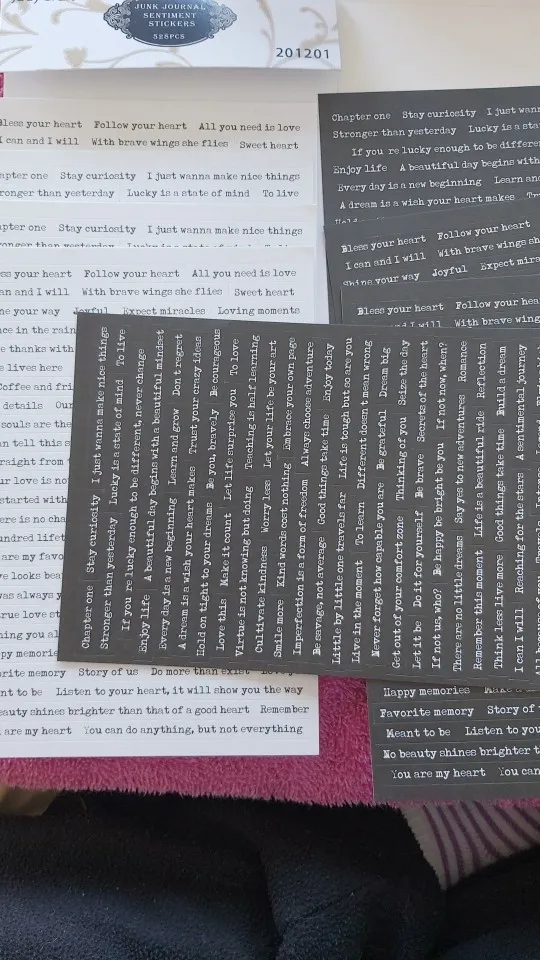 JUNK JOURNAL
SENTIMENT
STICKERS
528PCS
201201
Bless your heart Follow your heart All you need is love
I can and I will With brave wings she flies Sweet heart
apter one Stay curiosity I just wanna make nice things
ronger than yesterday Lucky is a state of mind To live
apter one Stay curiosity I just wanna make nice things
ronger than yesterday
ess your heart Follow your heart All you need is love
an and I will With brave wings she flies Sweet heart
ne your way Joyful Expect miracles Loving moments
ce in the rain
e thanks with
e lives here
Coffee and fri
details Our
souls are the
n tell this s
raight from
ur love is no
started with
ere is no cha
undred lifet
are my favo
ve looks bea
was always y
rue love st
hing you al
py memorie
orite memory Story of us Do more than exist
nt to be Listen to your heart, it will show you the way
eauty shines brighter than that of a good heart Remember
are my heart You can do anything, but not everything
Chapter one Stay curiosity I just wann
Stronger than yesterday Lucky is a sta
If you re lucky enough to be differen
Enjoy life A beautiful day begins with
Every day is a new beginning Learn and
A dream is a wish your heart makes
Bless your heart Follow your heart
I can and I will With brave wings sh
Shine your way Joyful Expect mira
Bless your heart Follow your hea
I can and I will With brave wing
Chapter one Stay curiosity I just wanna make nice things
Stronger than yesterday Lucky is a state of mind To live
If you re lucky enough to be different, never change
Enjoy life A beautiful day begins with a beautiful mindset
Every day is a new beginning Learn and grow Don t regret
A dream is a wish your heart makes Trust your crazy ideas
Hold on tight to your dreams Be you, bravely Be courageous
Love this Make it count Let life surprise you To love
Virtue is not knowing but doing Teaching is half learning
Cultivate kindness Worry less Let your life be your art
Smile more Kind words cost nothing Embrace your own page
Imperfection is a form of freedom Always choose adventure
Be savage, not average Good things take time Enjoy today
Little by little one travels far Life is tough but so are you
Live in the moment To learn Different doesn t mean wrong
Never forget how capable you are Be grateful Dream big
Get out of your comfort zone Thinking of you Seize the day
Let it be Do it for yourself Be brave Secrets of the heart
If not us, who? Be happy be bright be you If not now, when?
There are no little dreams Say yes to new adventures Romance
Remember this moment Life is a beautiful ride Reflection
Think less live more Good things take time Build a dream
I can I will Reaching for the stars A sentimental journey
Happy memories
Favorite memory Story of
Meant to be Listen to you
No beauty shines brighter t
You are my heart You can